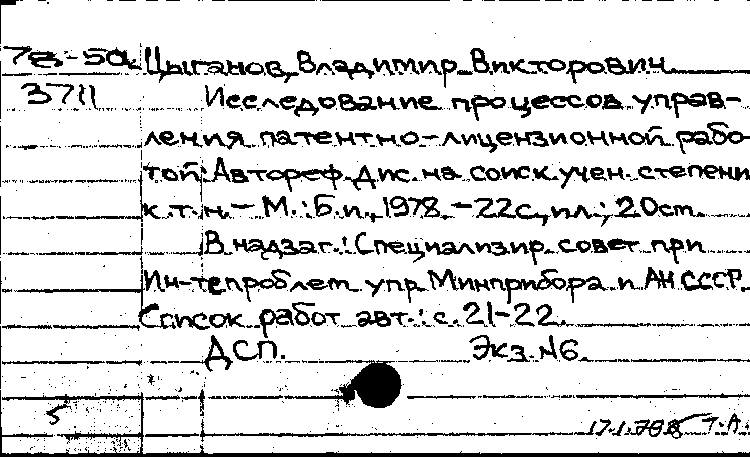 78-5a Цыганов Владимир Викторович
3711 Исследование процессов управ-
ления патентно-лицензионной рабо-
той: Автореф. дис. на соиск. учен. степени
к. т. н. - М.: Б.и., 1978. - 22с., ил.; 20см.
В надзаг.: Специализир. совет при
Ин-те проблем упр. Минприбора и АН СССР.
Список работ авт.: с. 21-22.
ДСП. Экз. №6.
5
17.1. Т.А.